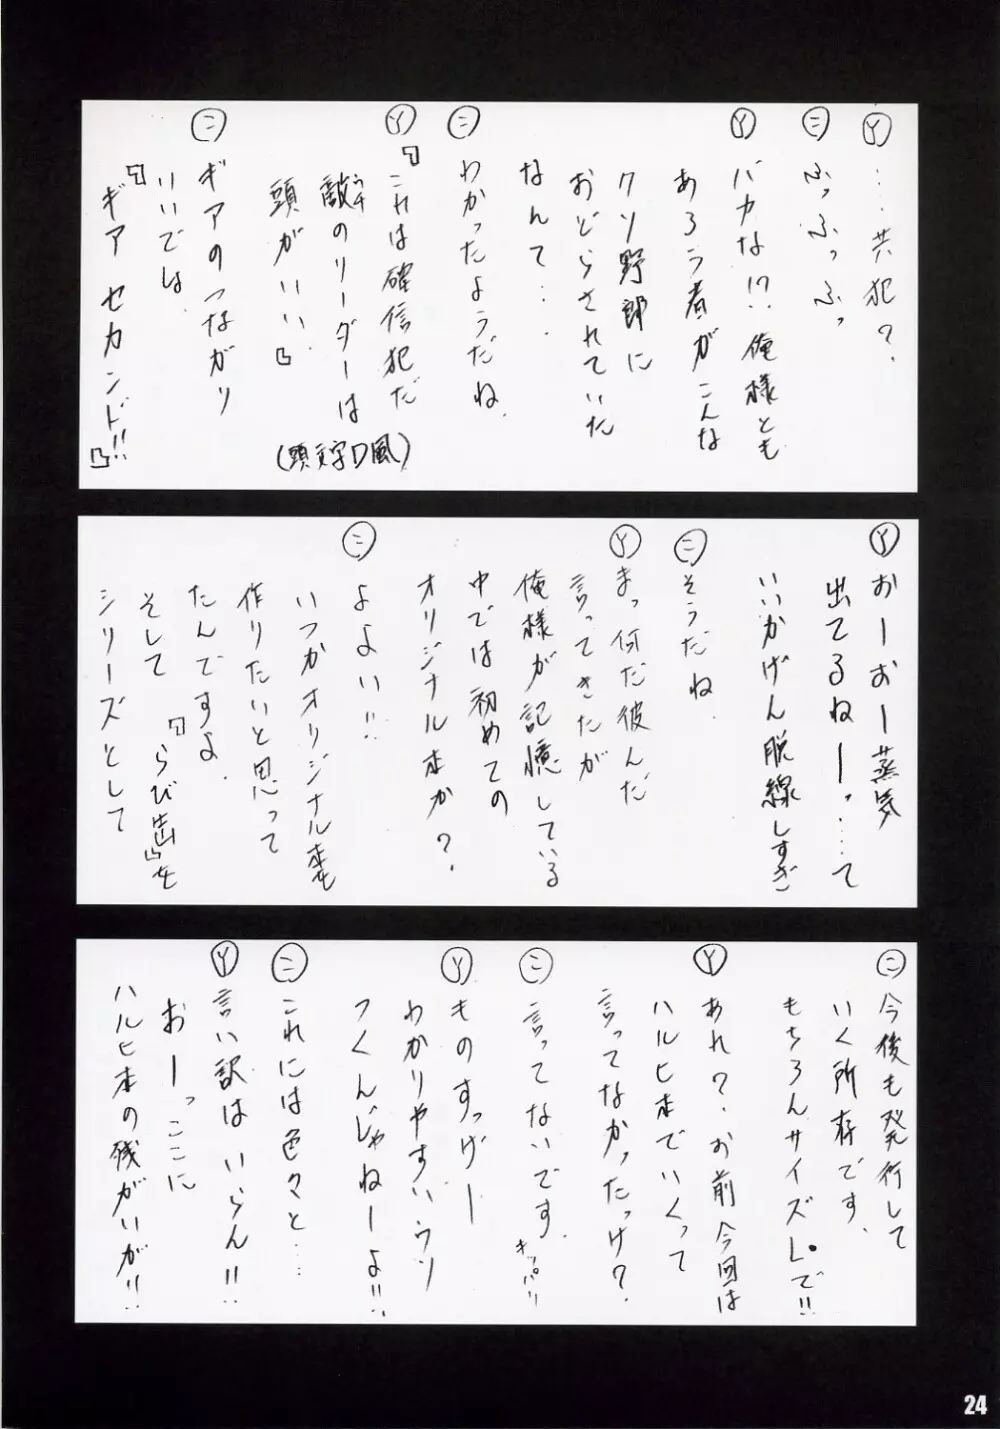 Ⓨ …共犯?
㊁ ふっふっふっ
Ⓨ バカな!?俺様とも
あろう者がこんな
クソ野郎に
おどらされていた
なんて…
㊁ わかったようだね
Ⓨ 『これは確信犯だ
敵のリーダーは
ウチ
頭がいい』
(頭文字D風)
㊁ ギアのつながり
いいでは
『ギア セカンド!!』
Ⓨ おーおー蒸気
出てるねーっ…て
いいかげん脱線しすぎ
㊁ そうだね
Ⓨ まっ何だ彼んだ
言ってきたが
俺様が記憶している
中では初めての
オリジナル本か?
㊁ よよい!!
いつかオリジナル本を
作りたいと思って
たんですよ
そして『らび出』を
シリーズとして
㊁ 今後も発行して
いく所存です
もちろんサイズLで!!
Ⓨ あれ?お前今回は
ハルヒ本でいくって
言ってなかったっけ?
㊁ 言ってないです
キッパリ
Ⓨ ものすっげー
わかりやすいウソ
つくんじゃねーよ!!
㊁ これには色々と…
Ⓨ 言い訳はいらん!!
おーっここに
ハルヒ本の残がいが!!
24